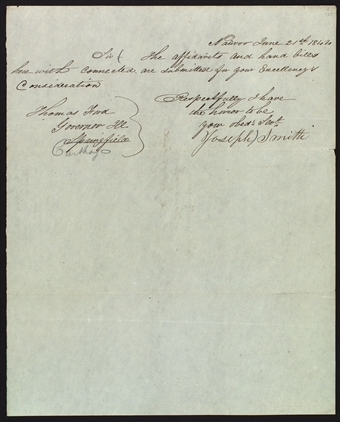 Nauvoo June 21st 1844
Sir The affidavits and hand bills
here with connected are submitted for your Excellency's
Consideration
Respectfully I have
the honor to be
your obedt Servt.
Joseph Smith
Thomas Ford
Governor Ill.
Springfield
Carthage